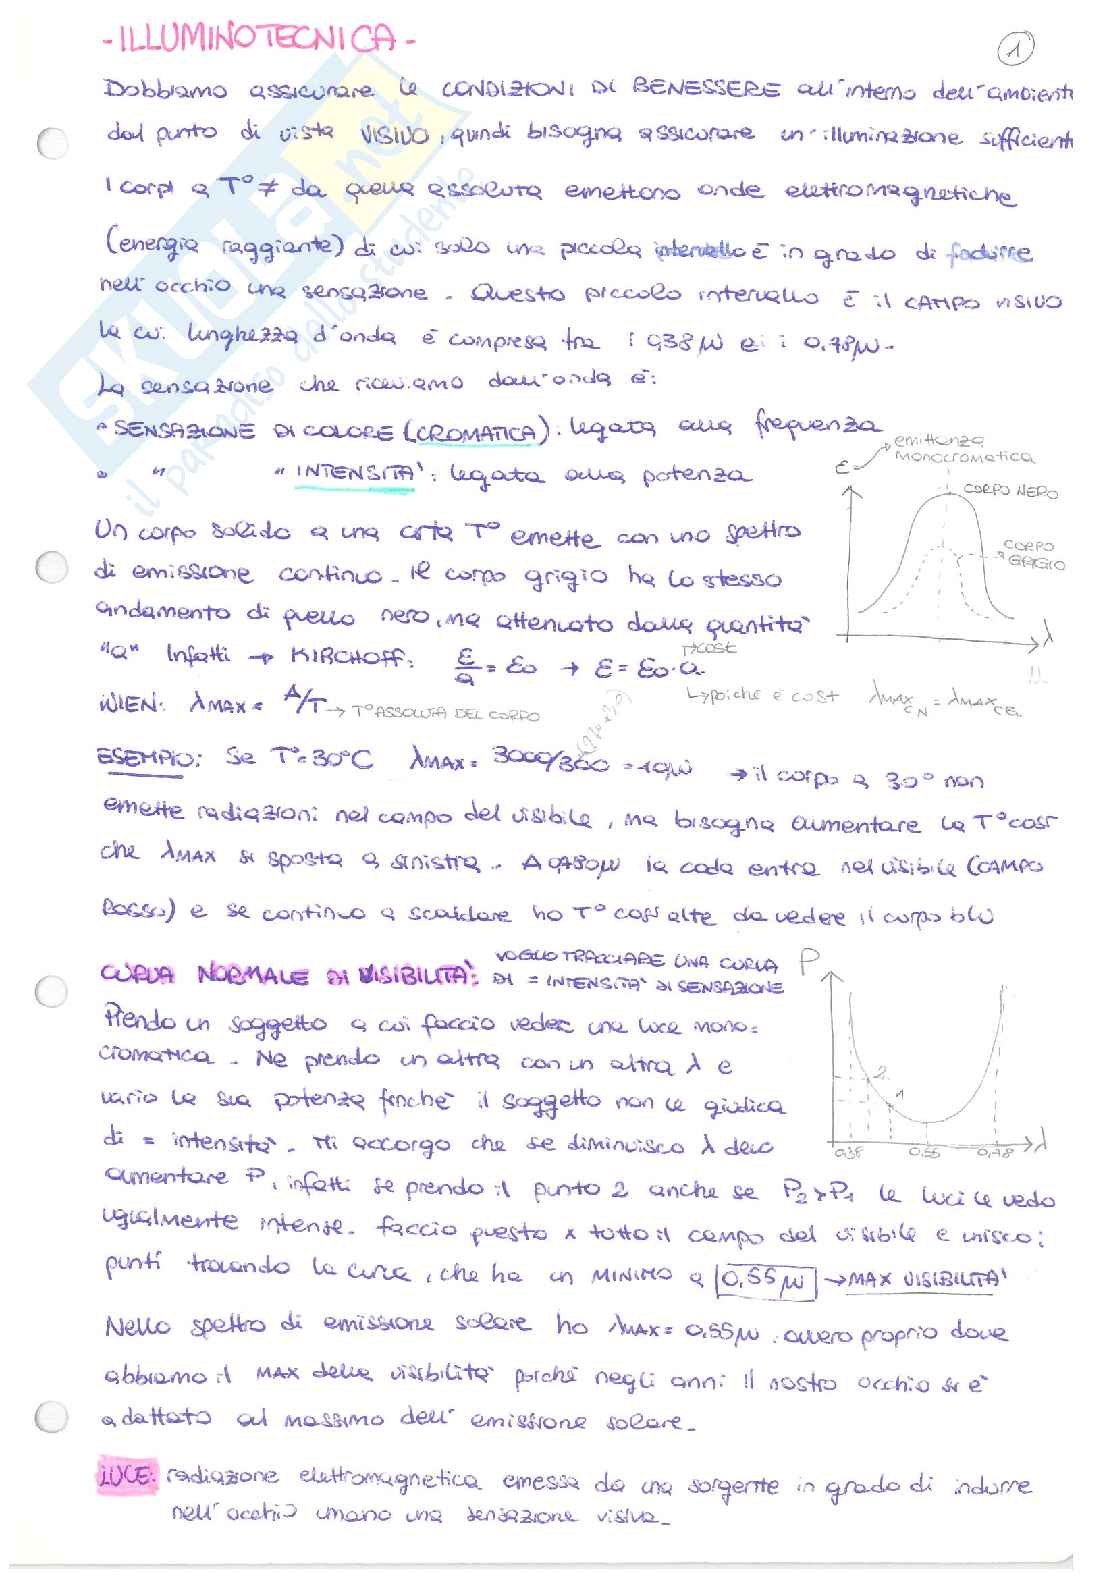 -ILLUMINOTECNICA-
1
Dobbiamo assicurare le CONDIZIONI DI BENESSERE all'interno dell'ambient
dal punto di vista VISIVO, quindi bisogna assicurare un'illuminazione sufficient
I corpi a T° ≠ da quella assoluta emettono onde elettromagnetiche
(energia raggiante) di cui solo una piccola intervallo è in grado di
nell'occhio una sensazione. Questo piccolo intervallo è il CAMPO VISIVO
la cui lunghezza d'onda è compresa tra i 0,38 μ e i 0,78 μ.
La sensazione che riceviamo dall'onda è:
• SENSAZIONE DI COLORE (CROMATICA): legata alla frequenza
• " " INTENSITA': legata alla potenza
ε → emittenza
monocromatica
CORPO NERO
CORPO
GRIGIO
λ
Un corpo solido a una certa T° emette con uno spettro
di emissione continuo. Il corpo grigio ha lo stesso
andamento di quello nero, ma attenuato dalla quantità
"a" Infatti → KIRCHOFF: ε/a = ε₀ → ε = ε₀·a
→cost
↳poiché è cost λMAX CN = λMAX CG
WIEN: λMAX = A/T → T° ASSOLUTA DEL CORPO
(273+30)
ESEMPIO: Se T°=30°C λMAX = 3000/300 = 10μ → il corpo a 30° non
emette radiazioni nel campo del visibile, ma bisogna aumentare la T° così
che λMAX si sposta a sinistra. A 0,780μ la coda entra nel visibile (CAMPO
ROSSO) e se continuo a scaldare ho T° così alte da vedere il corpo blu
CURVA NORMALE DI VISIBILITA': VOGLIO TRACCIARE UNA CURVA
DI = INTENSITA' DI SENSAZIONE
P
2
1
0,38 0,55 0,78 λ
Prendo un soggetto a cui faccio vedere una luce mono=
cromatica. Ne prendo un altra con un altra λ e
vario la sua potenza finché il soggetto non le giudica
di = intensità. Mi accorgo che se diminuisco λ devo
aumentare P, infatti se prendo il punto 2 anche se P2>P1 le luci le vedo
ugualmente intense. Faccio questo x tutto il campo del visibile e unisco i
punti trovando la curva, che ha un MINIMO a 0,55 μ → MAX VISIBILITA'
Nello spettro di emissione solare ho λMAX = 0,55 μ. ovvero proprio dove
abbiamo il MAX della visibilità poiché negli anni il nostro occhio si è
adattato al massimo dell'emissione solare.
LUCE: radiazione elettromagnetica emessa da una sorgente in grado di indurre
nell'occhio umano una sensazione visiva.
SKUOLA.net
il paradiso dello studente